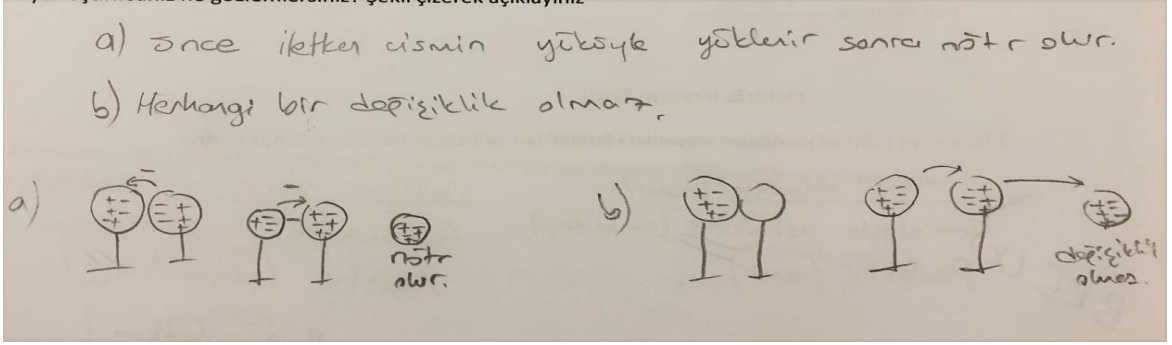 şekil çizerek açıklayınız
a) önce iletken cismin yüküyle yüklenir sonra nötr olur.
b) Herhangi bir değişiklik olmaz.
a)
nötr
olur.
b)
değişiklik
olmaz.